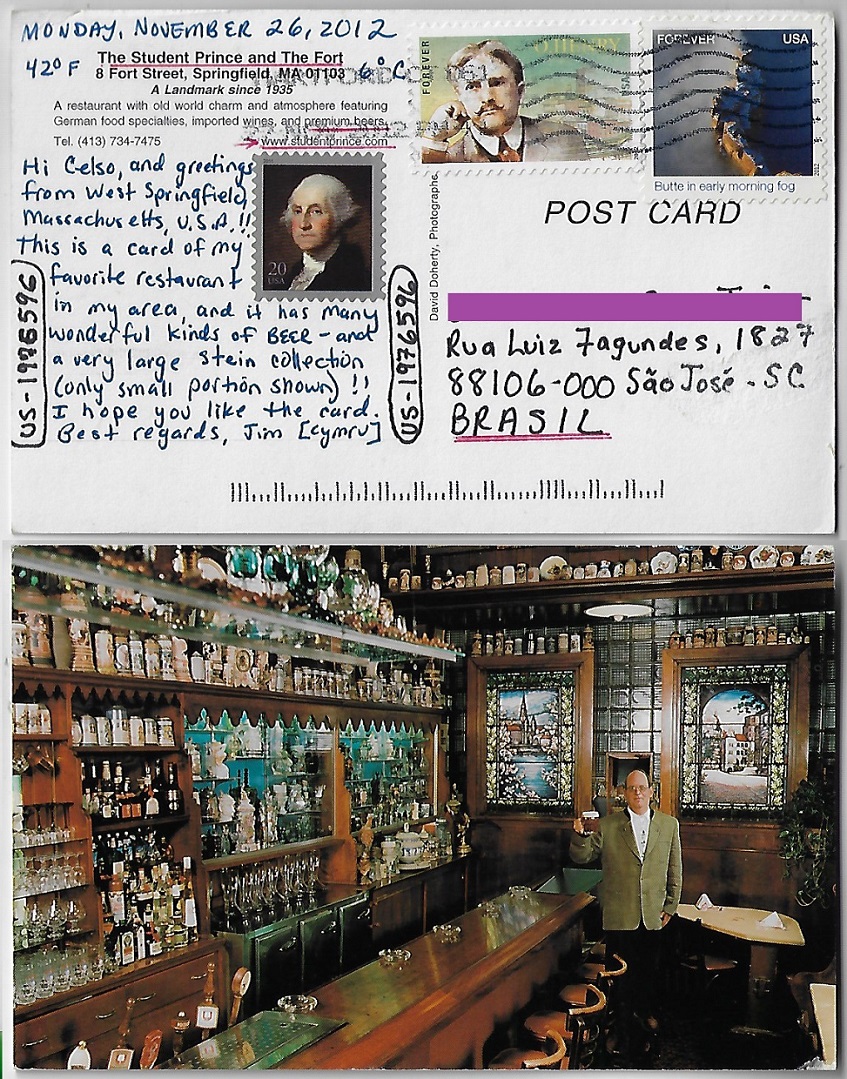 MONDAY, NOVEMBER 26, 2012
42° F
6° C
The Student Prince and The Fort
8 Fort Street, Springfield, MA 01103
A Landmark since 1935
A restaurant with old world charm and atmosphere featuring
German food specialties, imported wines, and premium beers.
Tel. (413) 734-7475
www.studentprince.com
Hi Celso, and greetings
from West Springfield,
Massachusetts, U.S.A.!!
This is a card of my
favorite restaurant
in my area, and it has many
wonderful kinds of BEER - and
a very large stein collection
(only small portion shown) !!
I hope you like the card.
Best regards, Jim [Cymru]
US-1976596
US-1976596
20
USA
FOREVER
O. HENRY
USA
FOREVER
USA
2012
Butte in early morning fog
POST CARD
David Doherty, Photographer
Rua Luiz Fagundes, 1827
88106-000 São José - SC
BRASIL